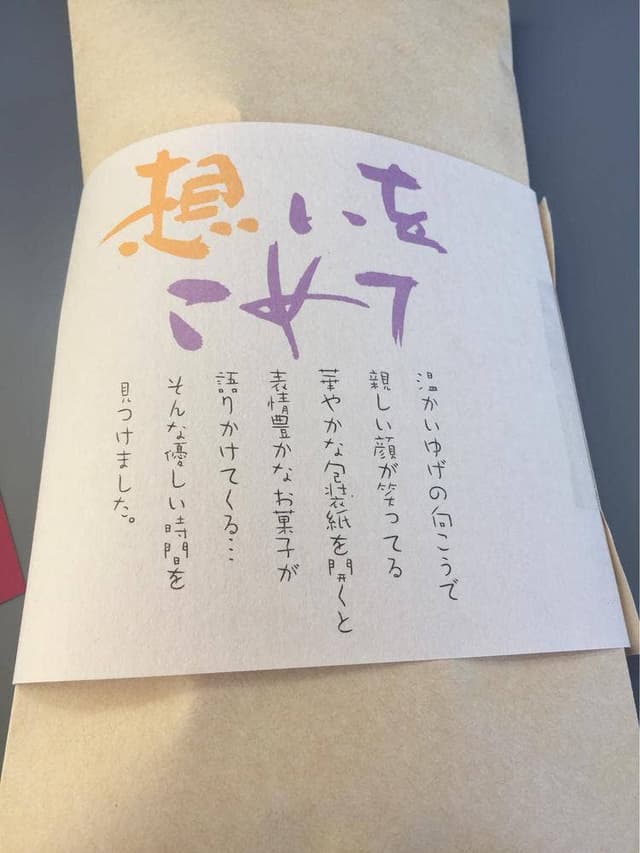 想いを
こめて
温かいゆげの向こうで
親しい顔が笑ってる
華やかな包装紙を開くと
表情豊かなお菓子が
語りかけてくる…
そんな優しい時間を
見つけました。